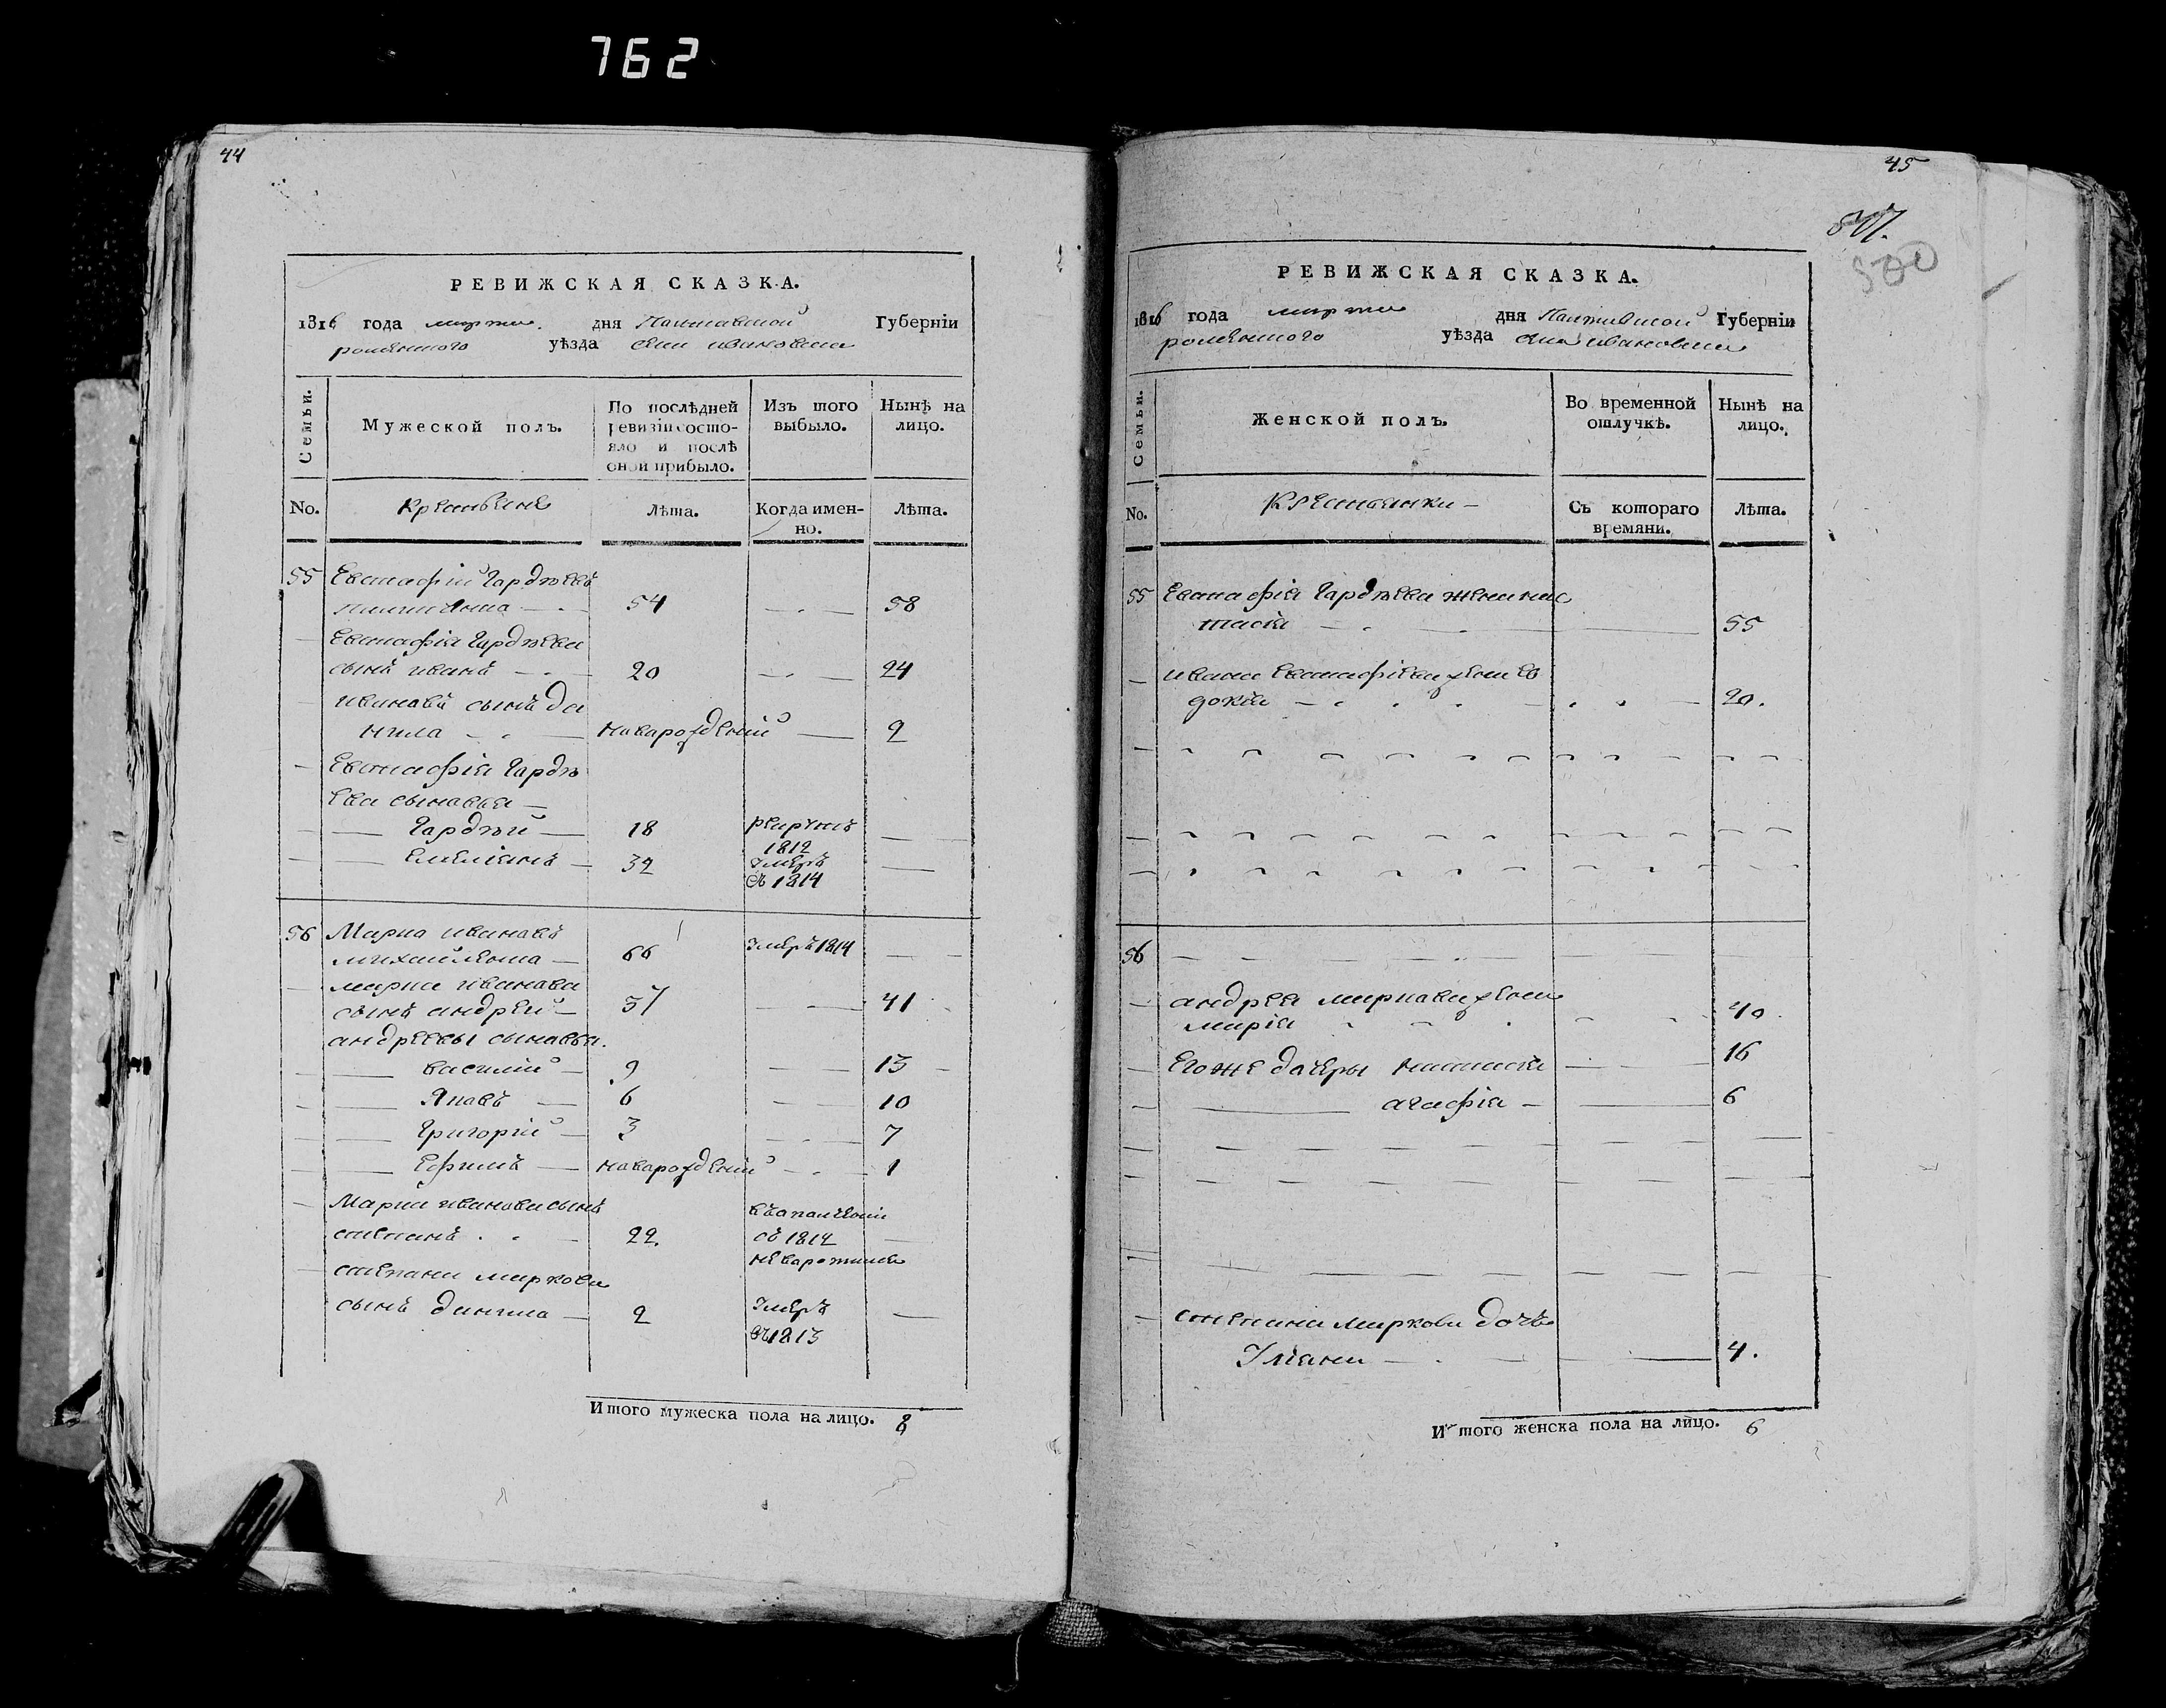 762
44
РЕВИЖСКАЯ СКАЗКА.
1816 года марта дня Полтавской Губерніи
роменского уѣзда села ивановки
Семьи.
Мужеской полъ.
По послѣдней ревизіи состояло и послѣ оной прибыло.
Изъ того выбыло.
Нынѣ на лицо.
No.
Крестьяне
Лѣта.
Когда именно.
Лѣта.
55 Евстафій Гардѣевъ
54 58
Евстафія Гардѣева
сынъ иванъ 20 24
ивановъ сынъ да
нила новорожденій 2
Евстафія Гардѣ
ева сыновья
Гардѣй 18 рекрутъ 1812
Емеліанъ 32 умеръ въ 1814
56 Марко ивановъ
66 умеръ 1814
марка иванова
сынъ андрей 37 41
андреевы сыновья.
василій 9 13
Яковъ 6 10
Григорій 3 7
Ефимъ новорожденій 1
Марка иванова сынъ
степанъ 22. въ ополченіи съ 1812 не воротился
степана маркова
сынъ данила 2 умеръ въ 1813
Итого мужеска пола на лицо. 8
45
500
РЕВИЖСКАЯ СКАЗКА.
1816 года марта дня Полтавской Губерніи
роменского уѣзда села ивановки
Семьи.
Женской полъ.
Во временной отлучкѣ.
Нынѣ на лицо.
No.
Крестьянки
Съ котораго времяни.
Лѣта.
55 Евстафія Гардѣева жена нас
тасія 55
ивана Евстафіева жена ев
докія 20.
56
андрея маркова жена
марія 40.
Его же дочеры настасія 16
агафія 6
степана маркова дочь
Уліана 4.
Итого женска пола на лицо. 6